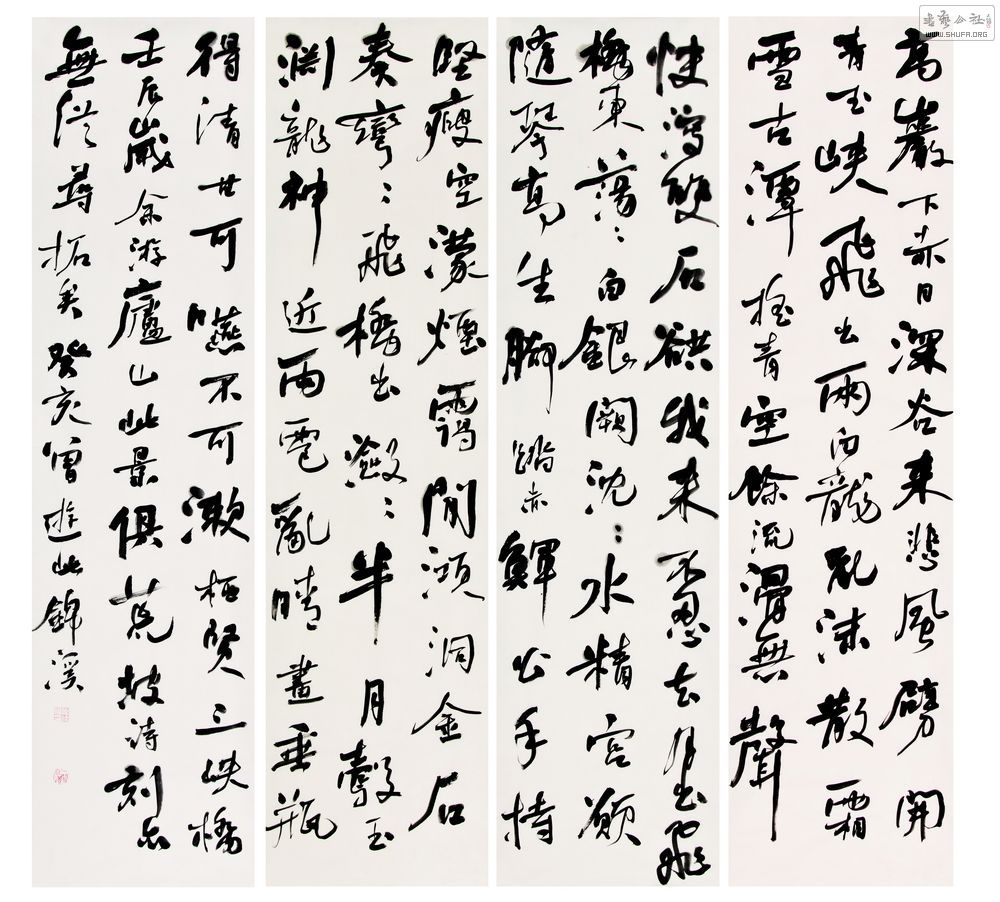 書藝公社
WWW.SHUFA.ORG
高巖下赤日深谷來悲風劈開
青玉峽飛出兩白龍亂沫散霜
雪古潭搖青空餘流滑無聲
快瀉雙石谼我來不忍去月出飛
橋東蕩:白銀闕沈:水精宮願
隨琴高生腳踏赤鯶公手持
堅瘦空濛煙靄間澒洞金石
奏彎:飛橋出瀲:半月彀玉
淵龍神近雨雹亂晴晝垂瓶
得清甘可嚥不可漱栖賢三峽橋
壬辰歲余游廬山此景俱荒坡詩刻亦
無從尋拓矣癸亥曾遊此錦溪